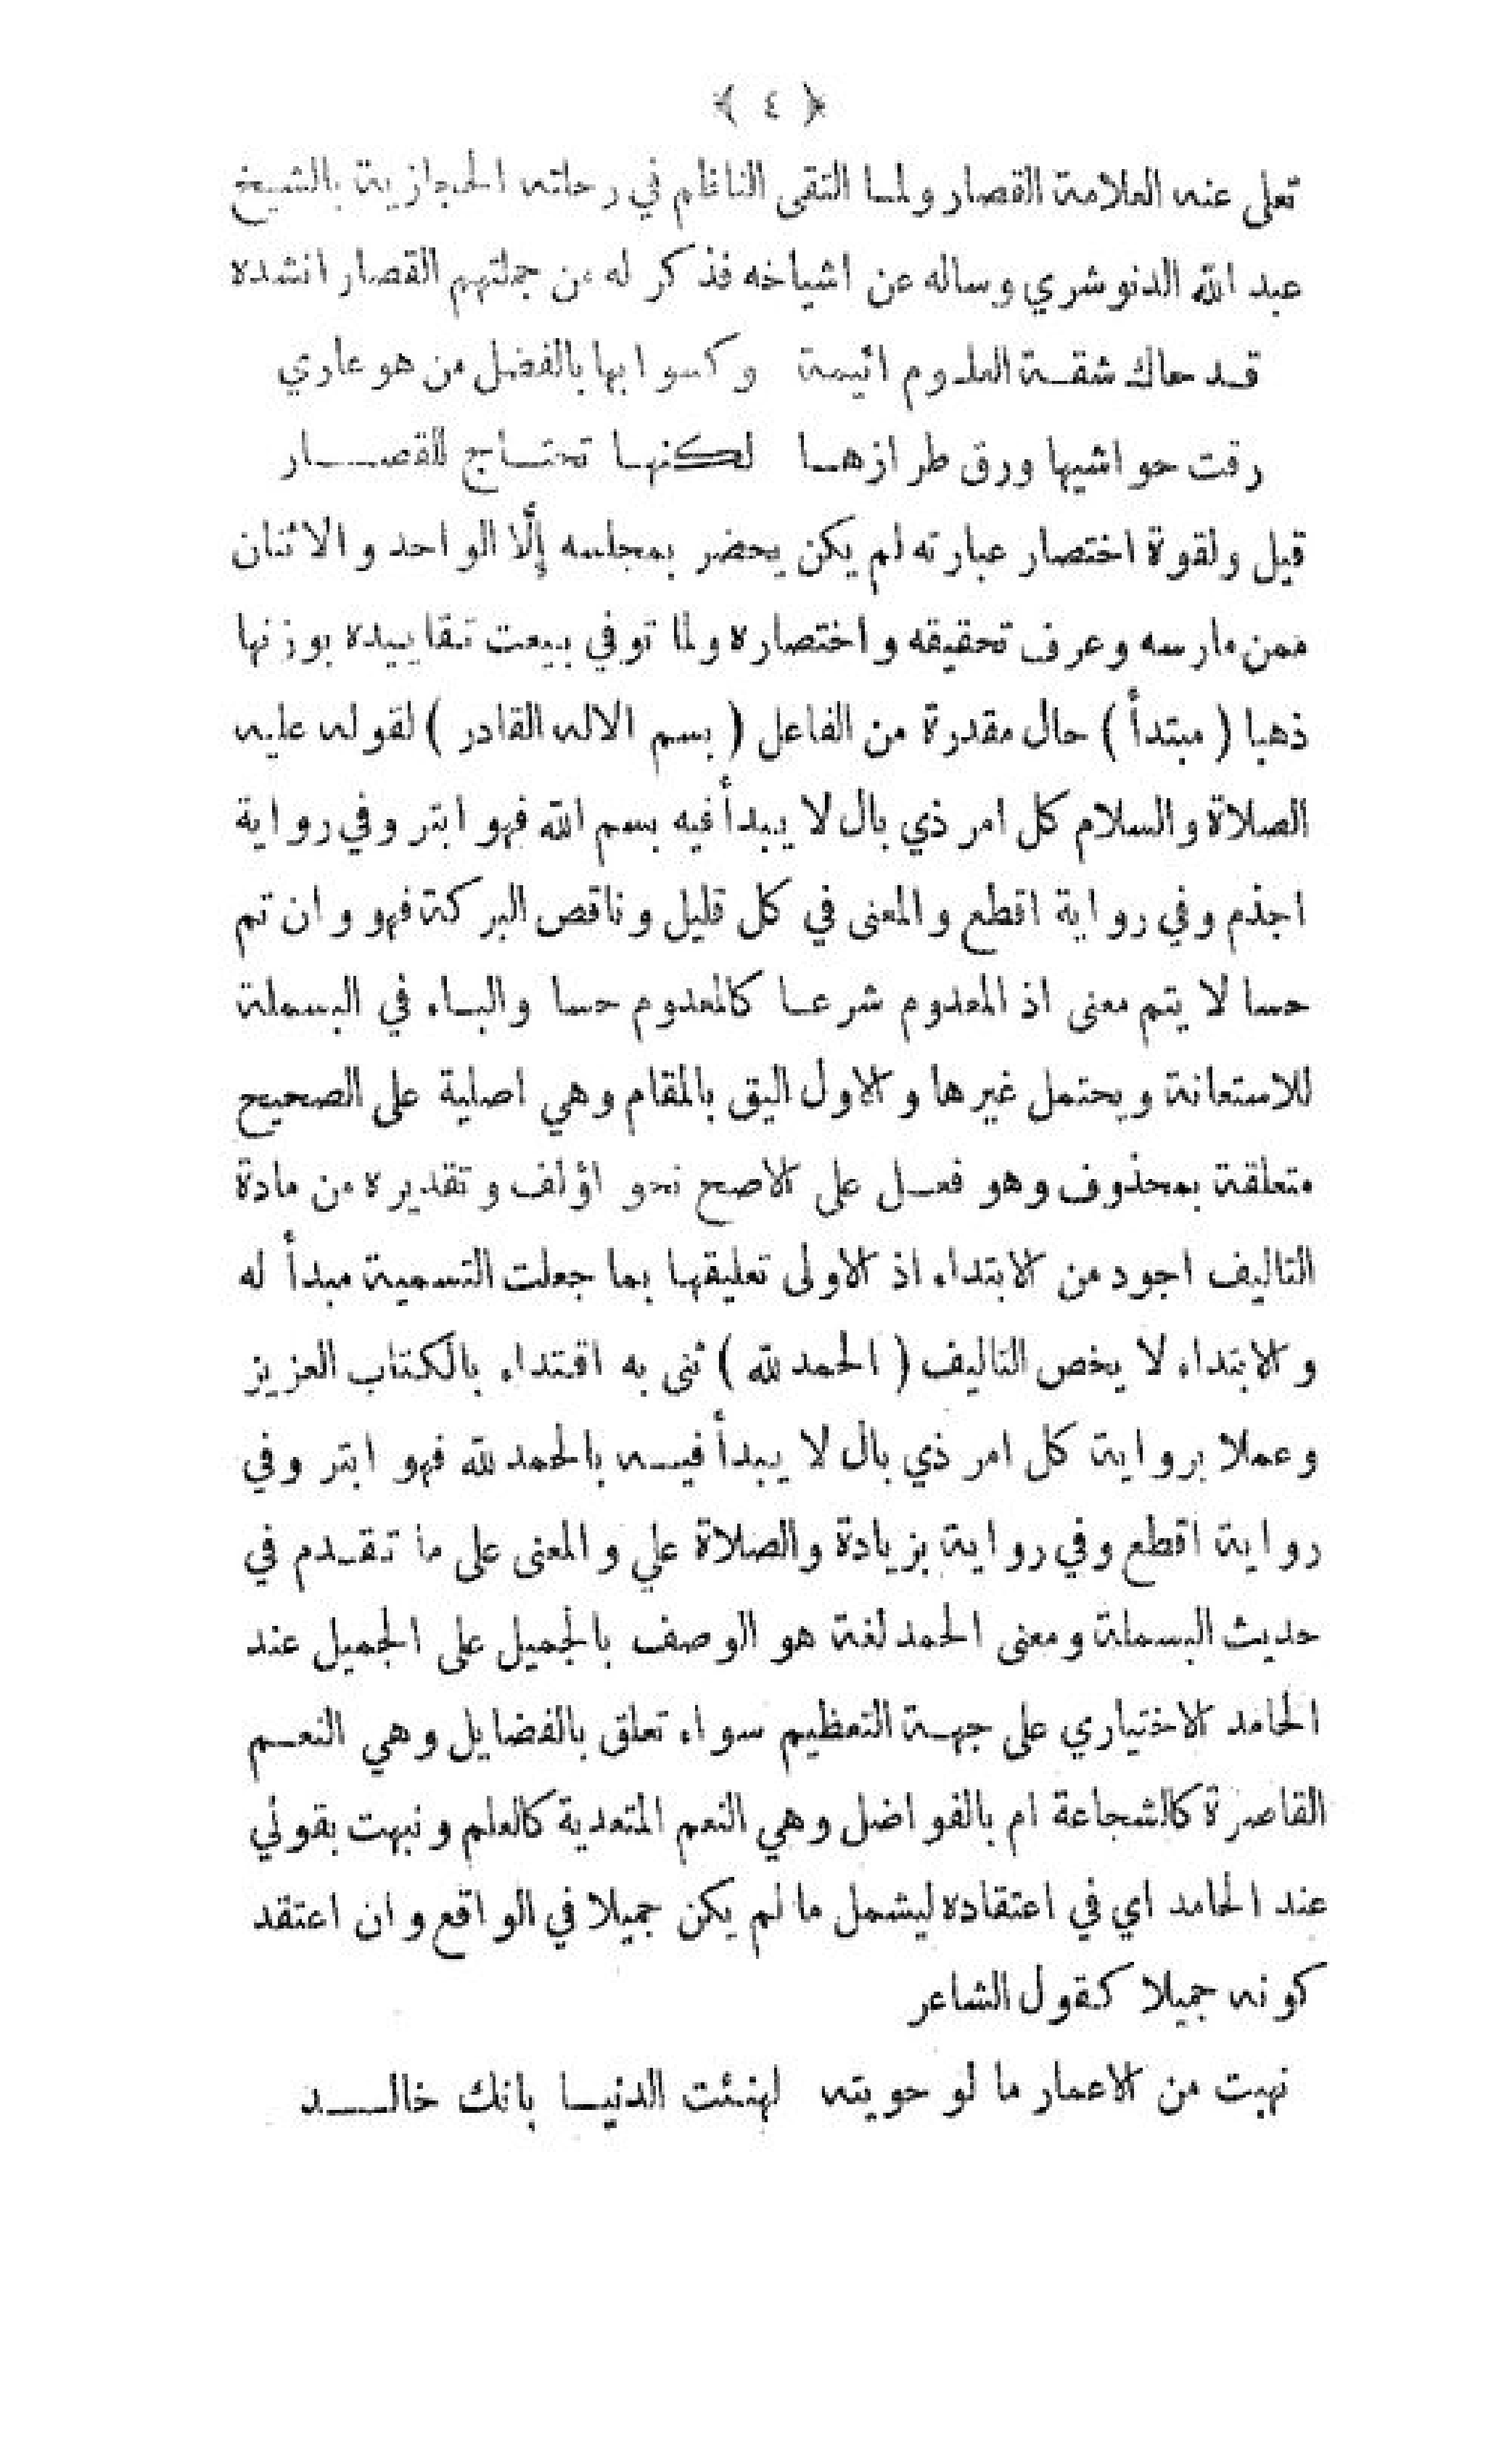 ﴿ ٤ ﴾
تعلى عنه العلامة القصار ولما التقى الناظم في رحلته الحجازية بالشيخ
عبد الله الدنوشري وساله عن اشياخه فذكر له من جملتهم القصار انشده
قد حاك شقة العلوم ائيمة وكسوا بها بالفضل من هو عاري
رقت حواشيها ورق طرازها لكنها تحتاج للقصار
قيل ولقوة اختصار عبارته لم يكن يحضر بمجلسه إلّا الواحد والاثنان
ممن مارسه وعرف تحقيقه واختصاره ولما توفي بيعت تقاييده بوزنها
ذهبا ( مبتدأ ) حال مقدرة من الفاعل ( بسم الاله القادر ) لقوله عليه
الصلاة والسلام كل امر ذي بال لا يبدأ فيه بسم الله فهو ابتر وفي رواية
اجذم وفي رواية اقطع والمعنى في كل قليل وناقص البركة فهو وان تم
حسا لا يتم معنى اذ المعدوم شرعا كالمعدوم حسا والباء في البسملة
للاستعانة ويحتمل غيرها والاول اليق بالمقام وهي اصلية على الصحيح
متعلقة بمحذوف وهو فعل على الاصح نحو اؤلف وتقديره من مادة
التاليف اجود من الابتداء اذ الاولى تعليقها بما جعلت التسمية مبدأ له
والابتداء لا يخص التاليف ( الحمد لله ) ثنى به اقتداء بالكتاب العزيز
وعملا برواية كل امر ذي بال لا يبدأ فيه بالحمد لله فهو ابتر وفي
رواية اقطع وفي رواية بزيادة والصلاة علي والمعنى على ما تقدم في
حديث البسملة ومعنى الحمد لغة هو الوصف بالجميل على الجميل عند
الحامد الاختياري على جهة التعظيم سواء تعلق بالفضايل وهي النعم
القاصرة كالشجاعة ام بالفواضل وهي النعم المتعدية كالعلم ونبهت بقولي
عند الحامد اي في اعتقاده ليشمل ما لم يكن جميلا في الواقع وان اعتقد
كونه جميلا كقول الشاعر
نهبت من الاعمار ما لو حويته لهنئت الدنيا بانك خالد